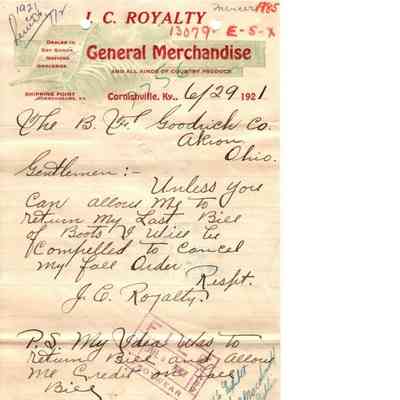 1921
mercer 1985
J. C. ROYALTY
13079- E-S-X
DEALER IN
DRY GOODS,
NOTIONS
GROCERIES.
General Merchandise
AND ALL KINDS OF COUNTRY PRODUCE
SHIPPING POINT
Cornishville, Ky., 6/29 1921
The B. F. Goodrich Co.
Akron
Ohio.
Gentlemen:-
Unless you
Can allow Me to
return My Last Bill
of Boots I Will be
Compelled to Cancel
my fall Order.
Respt.
J. C. Royalty.
P.S. My Idea Was to
return Bill and allow
Me Credit on fall
Bill